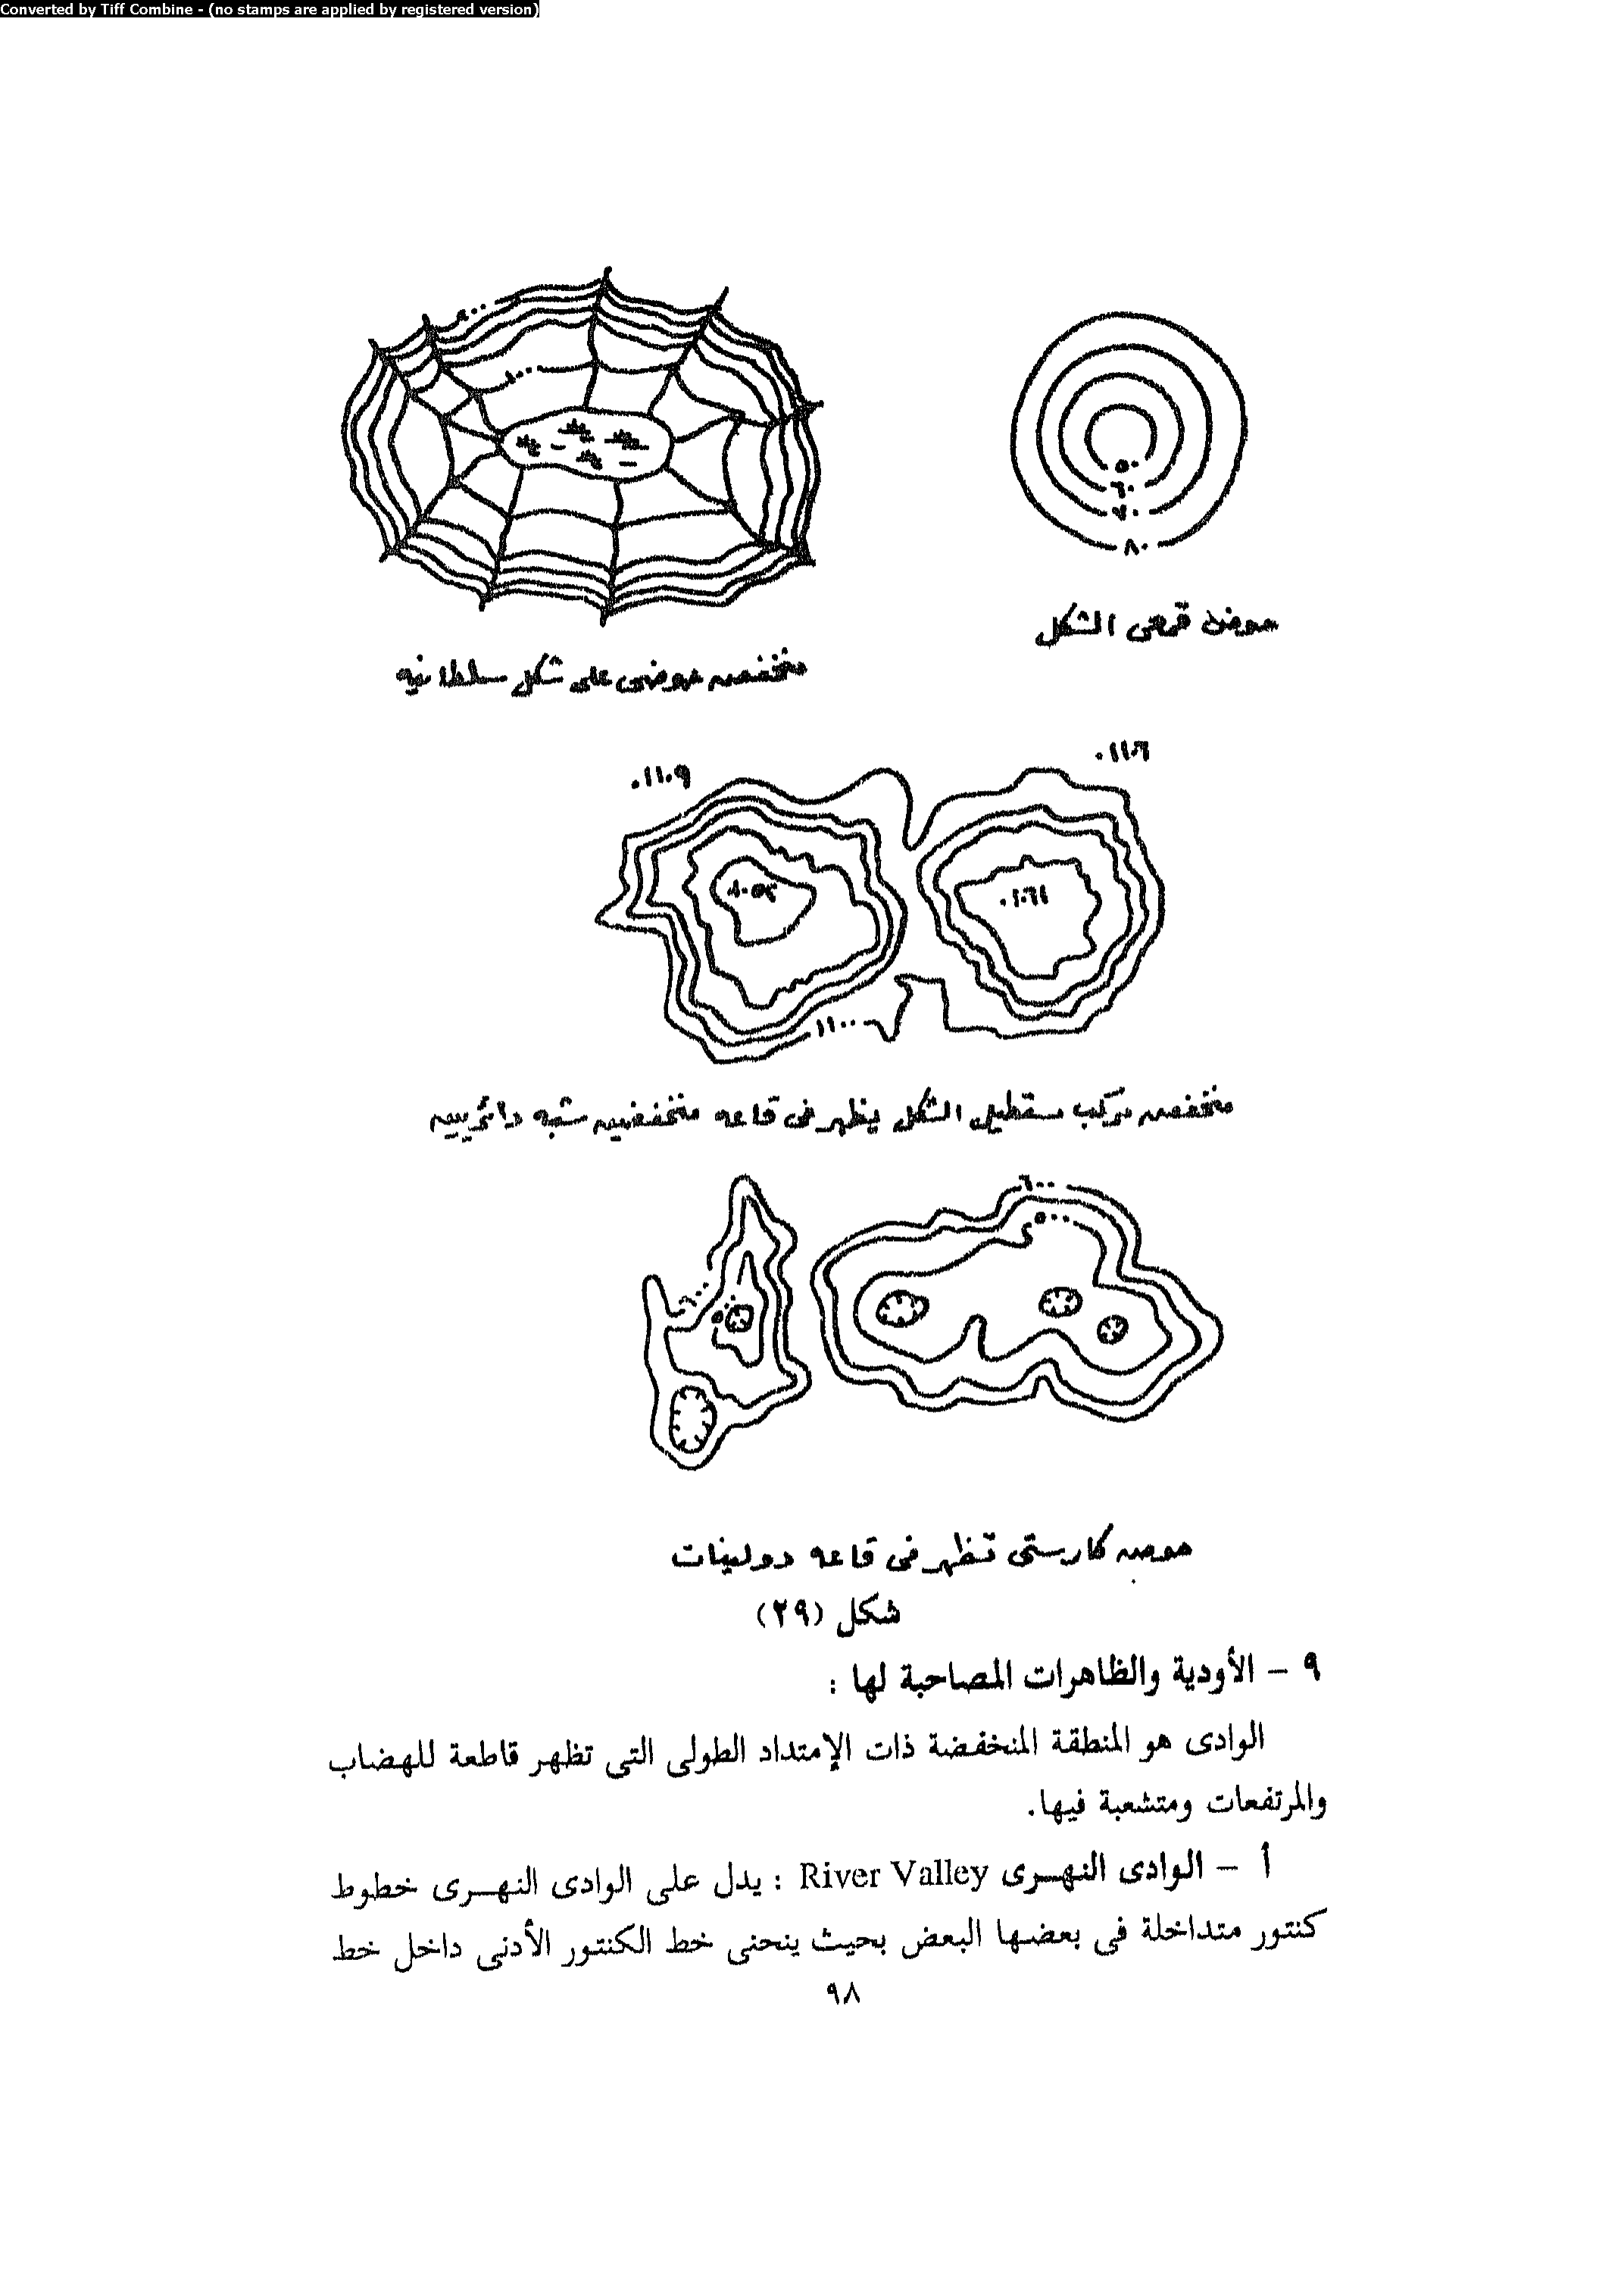 Converted by Tiff Combine - (no stamps are applied by registered version)
٥٠
٦٠
٧٠
٨٠
١٠٠
حوض قمعى الشكل
منخفض حوضى على شكل سلطانية
٠١١٠٩
١١٠٠
٠١٠٦١
منخفض مركب مستطيل الشكل يظهر فى قاعه منخفضين شبه دائريين
٦٠٠
٥٠٠
حوض كارستى تظهر فى قاعه دولينات
شكل (٢٩)
٩ – الأودية والظاهرات المصاحبة لها :
الوادى هو المنطقة المنخفضة ذات الإمتداد الطولى التى تظهر قاطعة للهضاب
والمرتفعات ومتشعبة فيها.
أ – الوادى النهـرى River Valley : يدل على الوادى النهـرى خطوط
كنتور متداخلة فى بعضها البعض بحيث ينحنى خط الكنتور الأدنى داخل خط
٩٨